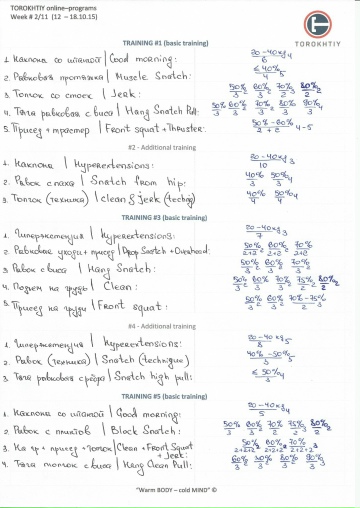 TOROKHTIY online–programs
Week # 2/11 (12 – 18.10.15)
TOROKHTIY
TRAINING #1 (basic training)
1. Наклона со штангой | Good morning: 20-40кg/6 4
2. Рывковая протяжка | Muscle Snatch: ≤40%/4 5
3. Толчок со стоек | Jerk: 50%/3 60%/3 2 70%/3 2 80%/2 2
4. Тяга рывковая с виса | Hang Snatch Pull: 50%/3 60%/3 70%/3 80%/3 90%/3
5. Присед + трастер | Front squat + Thruster: 50%-60%/2+2 4-5
#2 - Additional training
1. Наклона | Hyperextensions: 20-40кg/10 3
2. Рывок с паха | Snatch from hip: 40%/3 50%/3 4
3. Толчок (техника) | clean & jerk (techniq) 40%/4 50%/4 4
TRAINING #3 (basic training)
1. Гиперэкстензия | Hyperextensions: 20-40кg/7 3
2. Рывковая уход + присед | Drop Snatch + Overhead: 50%/2+2 60%/2+2 70%/2+2
3. Рывок с виса | Hang Snatch: 50%/3 60%/3 70%/3
4. Подъем на грудь | Clean: 50%/3 60%/3 70%/3 75%/2 80%/2
5. Присед на груди | Front squat: 50%/3 60%/3 70%-75%/2
#4 - Additional training
1. Гиперэкстензия | Hyperextensions: 20-40кg/8 5
2. Рывок (техника) | Snatch (technique) 40%-50%/3 5
3. Тяга рывковая средняя | Snatch high pull: ≤50%/3 4
TRAINING #5 (basic training)
1. Наклона со штангой | Good morning: 20-40кg/5 4
2. Рывок с плинтов | Block Snatch: 50%/3 60%/3 2 70%/2 2 75%/2 3 80%/2 2
3. На гр + присед + толчок | Clean + Front Squat + Jerk: 50%/2+2+2 60%/2+2+2 70%/2+2+2 3
4. Тяга толчок с виса | Hang Clean Pull: 60%/3 70%/3 80%/3 90%/3
“Warm BODY – cold MIND” ©